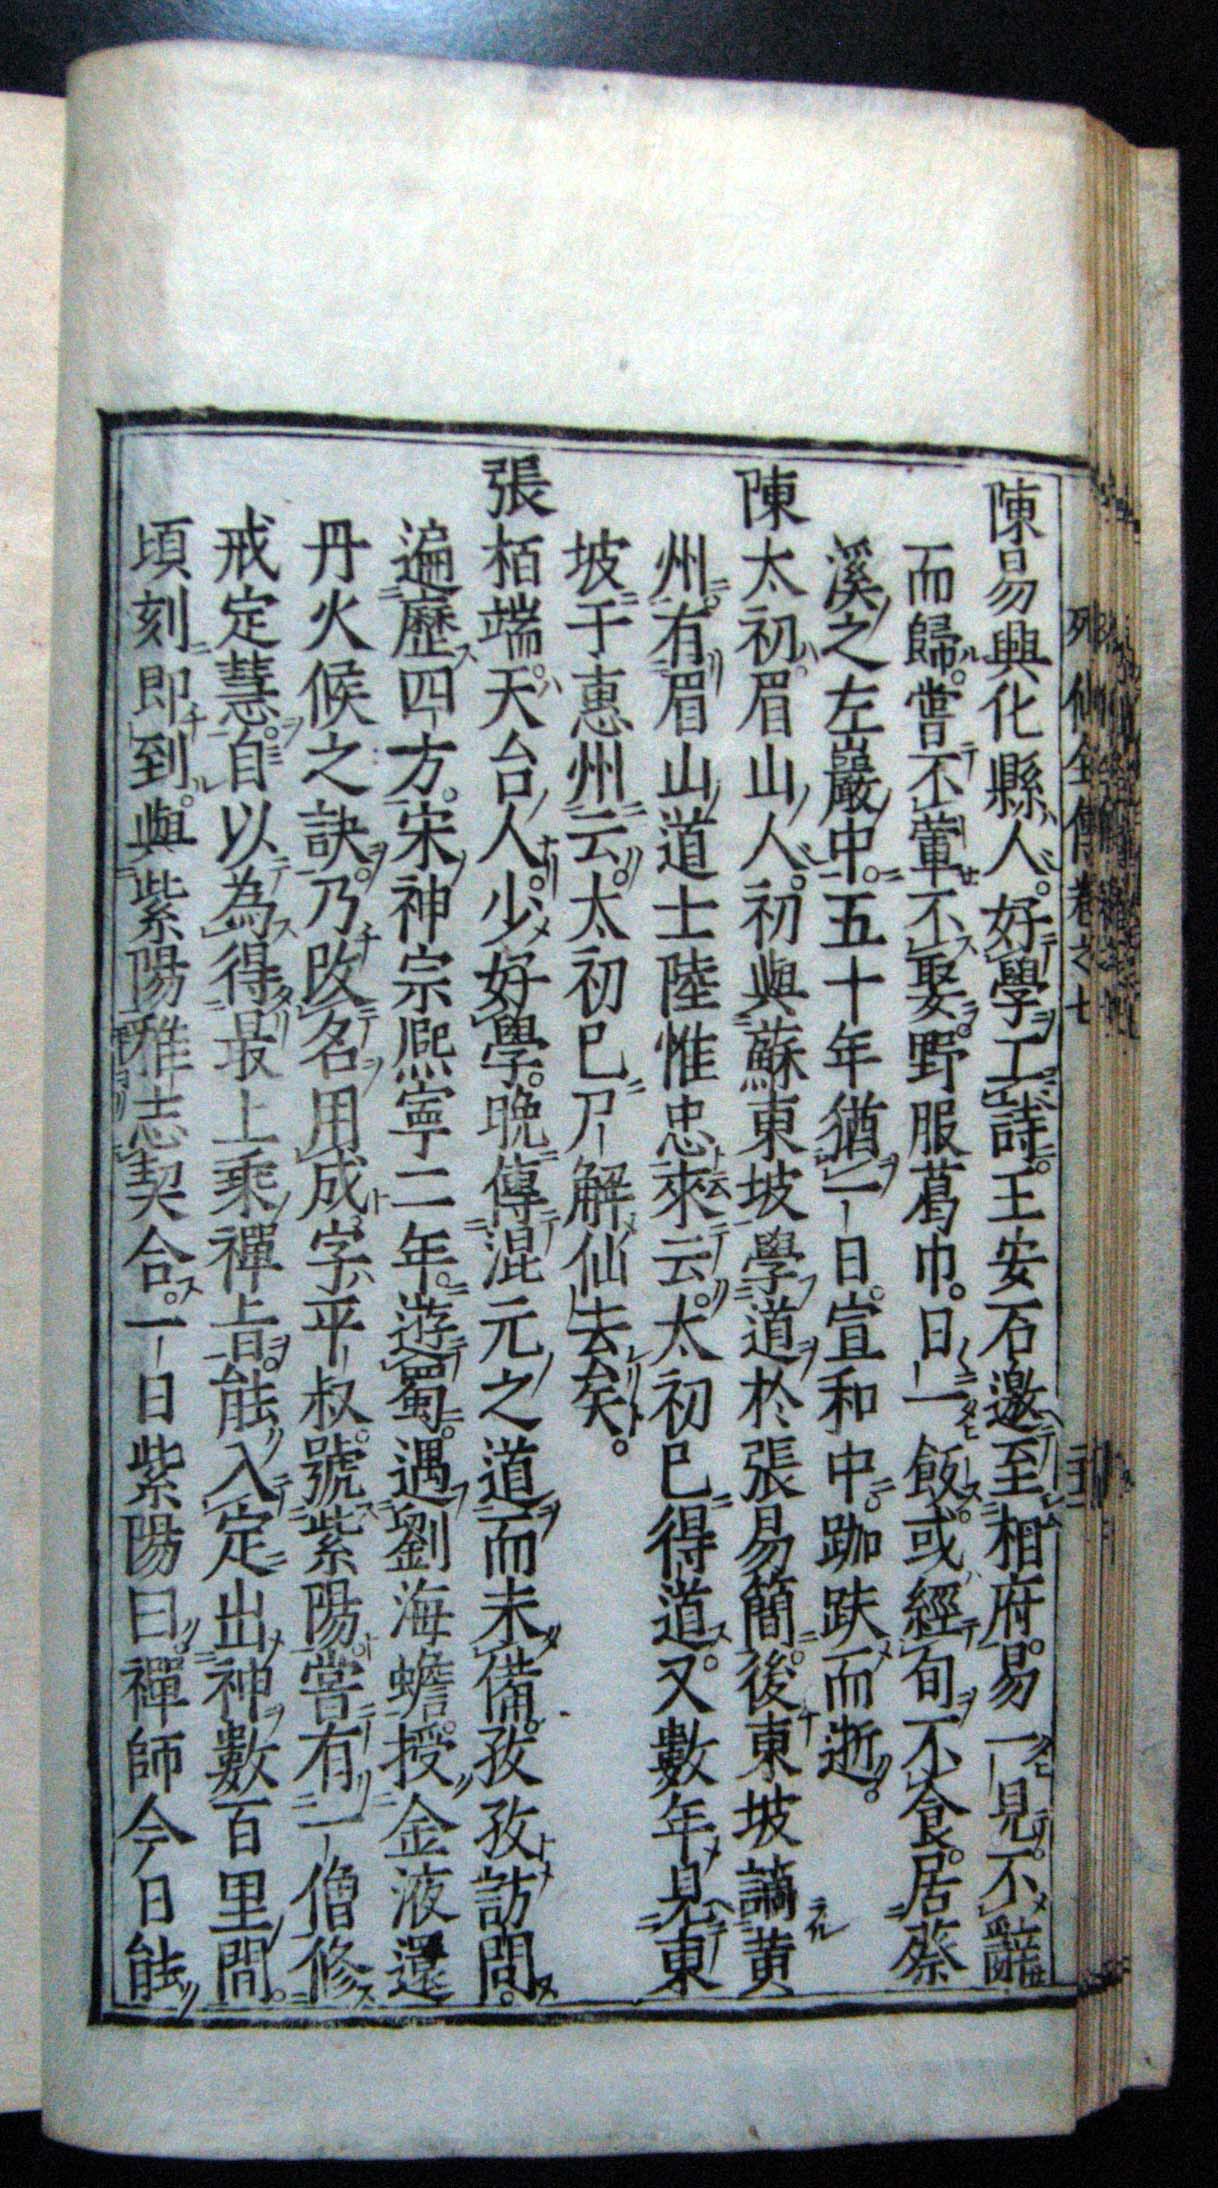 陳易興化縣人。好學工詩。王安石邀至相府。易一見。不辭
而歸。嘗不葷不娶。野服葛巾。日一飯。或經旬不食。居蔡
溪之左巖中。五十年猶一日。宣和中。跏趺而逝。
陳太初。眉山人。初與蘇東坡學道於張易簡。後東坡謫黃
州。有眉山道士陸惟忠來云。太初已得道。又數年見東
坡于惠州云。太初已尸解仙去矣。
張栢端。天台人。少好學。晚傳混元之道而未備。孜孜訪問。
遍歷四方。宋神宗熈寧二年。遊蜀。遇劉海蟾。授金液還
丹火候之訣。乃改名用成。字平叔。號紫陽。嘗有一僧修
戒定慧。自以為得最上乘禪旨。能入定出神。數百里間。
頃刻即到。與紫陽雅志契合。一日紫陽曰。禪師今日能
列仙全傳卷之七